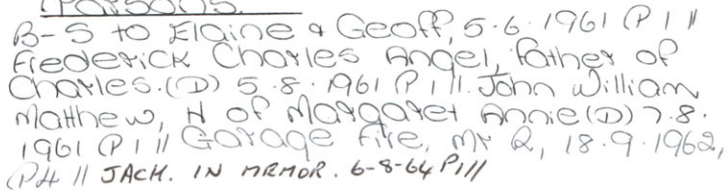 Parsons.
B-S to Elaine & Geoff, 5.6.1961 (P1//
Frederick Charles Angel, father of
Charles.(D) 5.8.1961 (P1//. John William
Matthew, H of Margaret Annie (D) 7.8.
1961 (P1// Garage Fire, Mr R, 18.9.1962,
(P4// JACK. IN MEMOR. 6-8-64 P1//